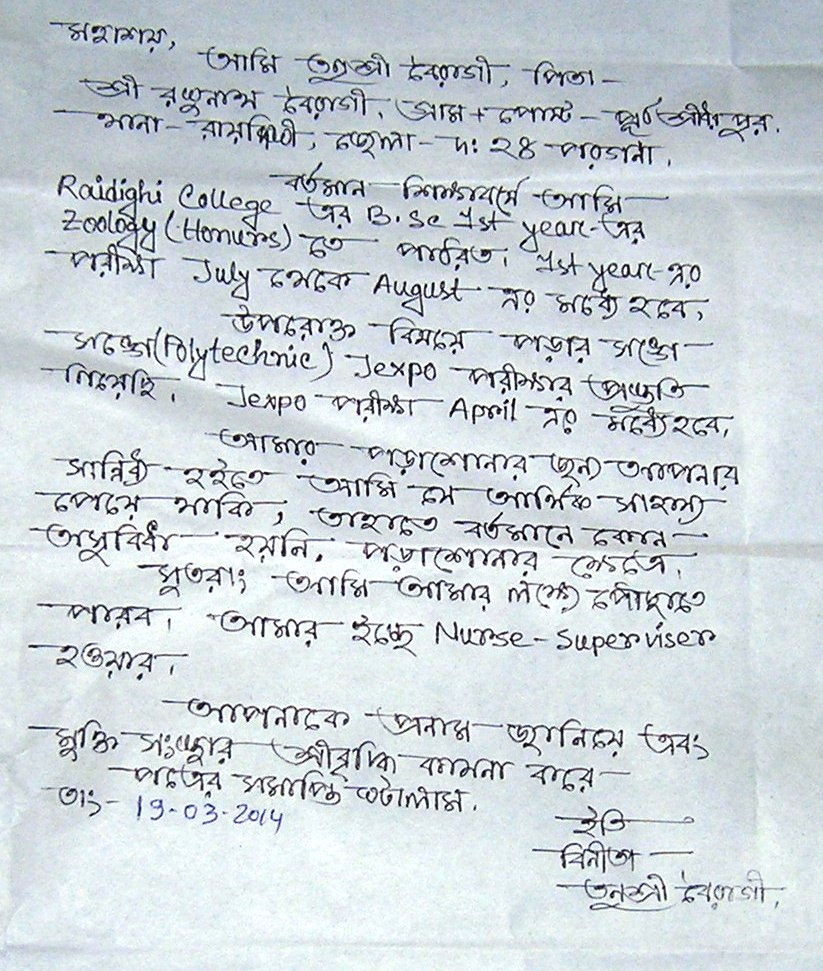 মহাশয়,
আমি তনুশ্রী বৈরাগী, পিতা –
শ্রী রঘুনাথ বৈরাগী, গ্রাম + পোস্ট – পূর্ব শ্রীধরপুর,
থানা – রায়দিঘী, জেলা – দঃ ২৪ পরগনা,
বর্তমান শিক্ষাবর্ষে আমি
Raidighi College এর B.Sc 1st year এর
Zoology (Honurs) তে পাঠরিতা। 1st year এর
পরীক্ষা July থেকে August এর মধ্যে হবে,
উপরোক্ত বিষয়ে পড়ার সঙ্গে
সঙ্গে (Polytechnic) Jexpo পরীক্ষার প্রস্তুতি
নিয়েছি। Jexpo পরীক্ষা April এর মধ্যে হবে,
আমার পড়াশোনার জন্য আপনার
সান্নিধ্য হইতে আমি যে আর্থিক সাহায্য
পেয়ে থাকি, তাহাতে বর্তমানে কোন
অসুবিধা হয়নি, পড়াশোনার ক্ষেত্রে।
সুতরাং আমি আমার লক্ষ্যে পৌছাতে
পারব। আমার ইচ্ছে Nurse-superviser
হওয়ার।
আপনাকে প্রনাম জানিয়ে এবং
মুক্তি সংস্থার শ্রীবৃদ্ধি কামনা করে
পত্রের সমাপ্তি ঘটালাম.
তাং- 19-03-2014
ইতি
বিনীতা
তনুশ্রী বৈরাগী,